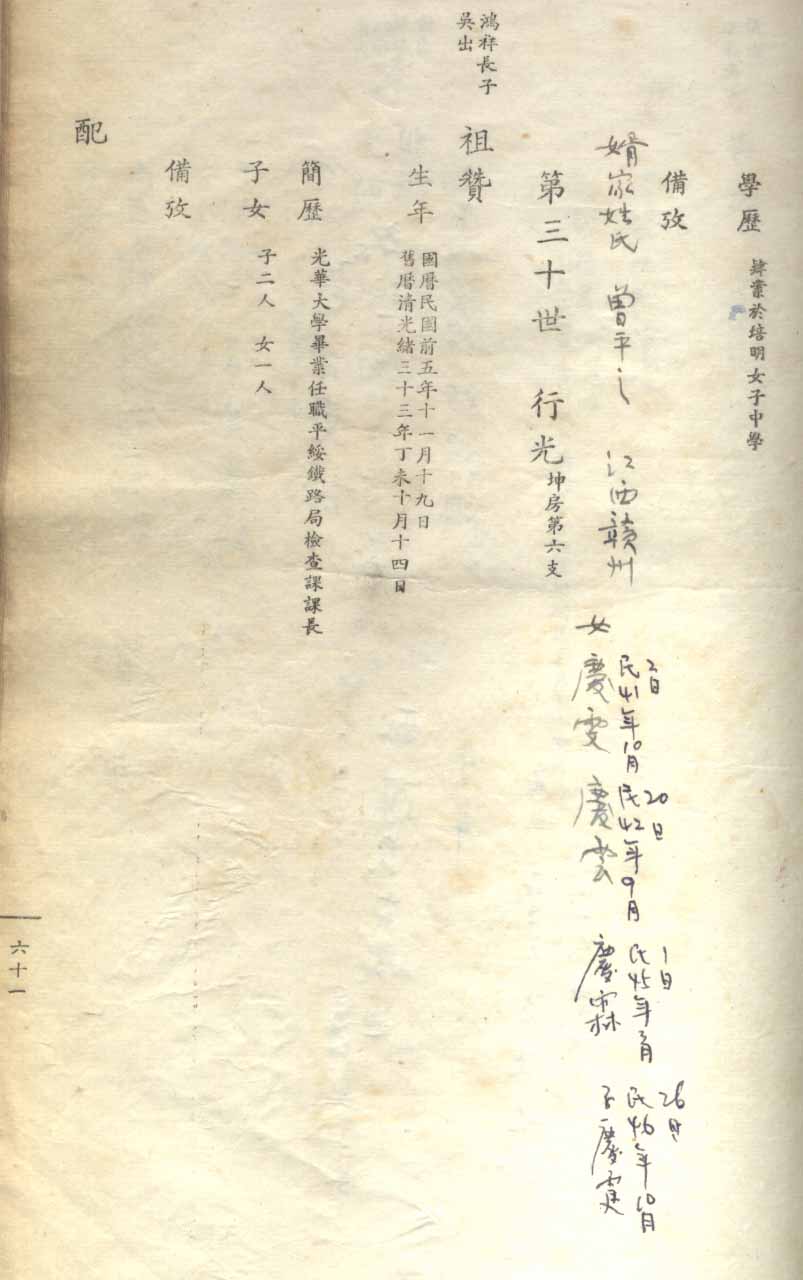 學歷 肄業於培明女子中學
備攷
婿家姓氏 曾平之 江西贛州
女 慶雯 民41年10月2日
慶雲 民42年9月20日
慶霖 民45年 月1日
子慶 民46年10月26日
第三十世 行光 坤房第六支
鴻祥長子
吳出
祖贊
生年 國曆民國前五年十一月十九日
舊曆清光緒三十三年丁未十月十四日
簡歷 光華大學畢業任職平綏鐵路局檢查課課長
子女 子二人 女一人
備攷
配
六十一